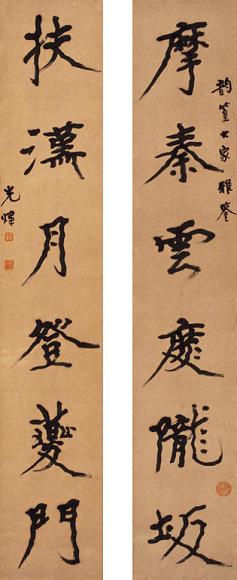 韵大家雅鑒
摩秦雲度隴坂
扶漢月登夔門
光煒